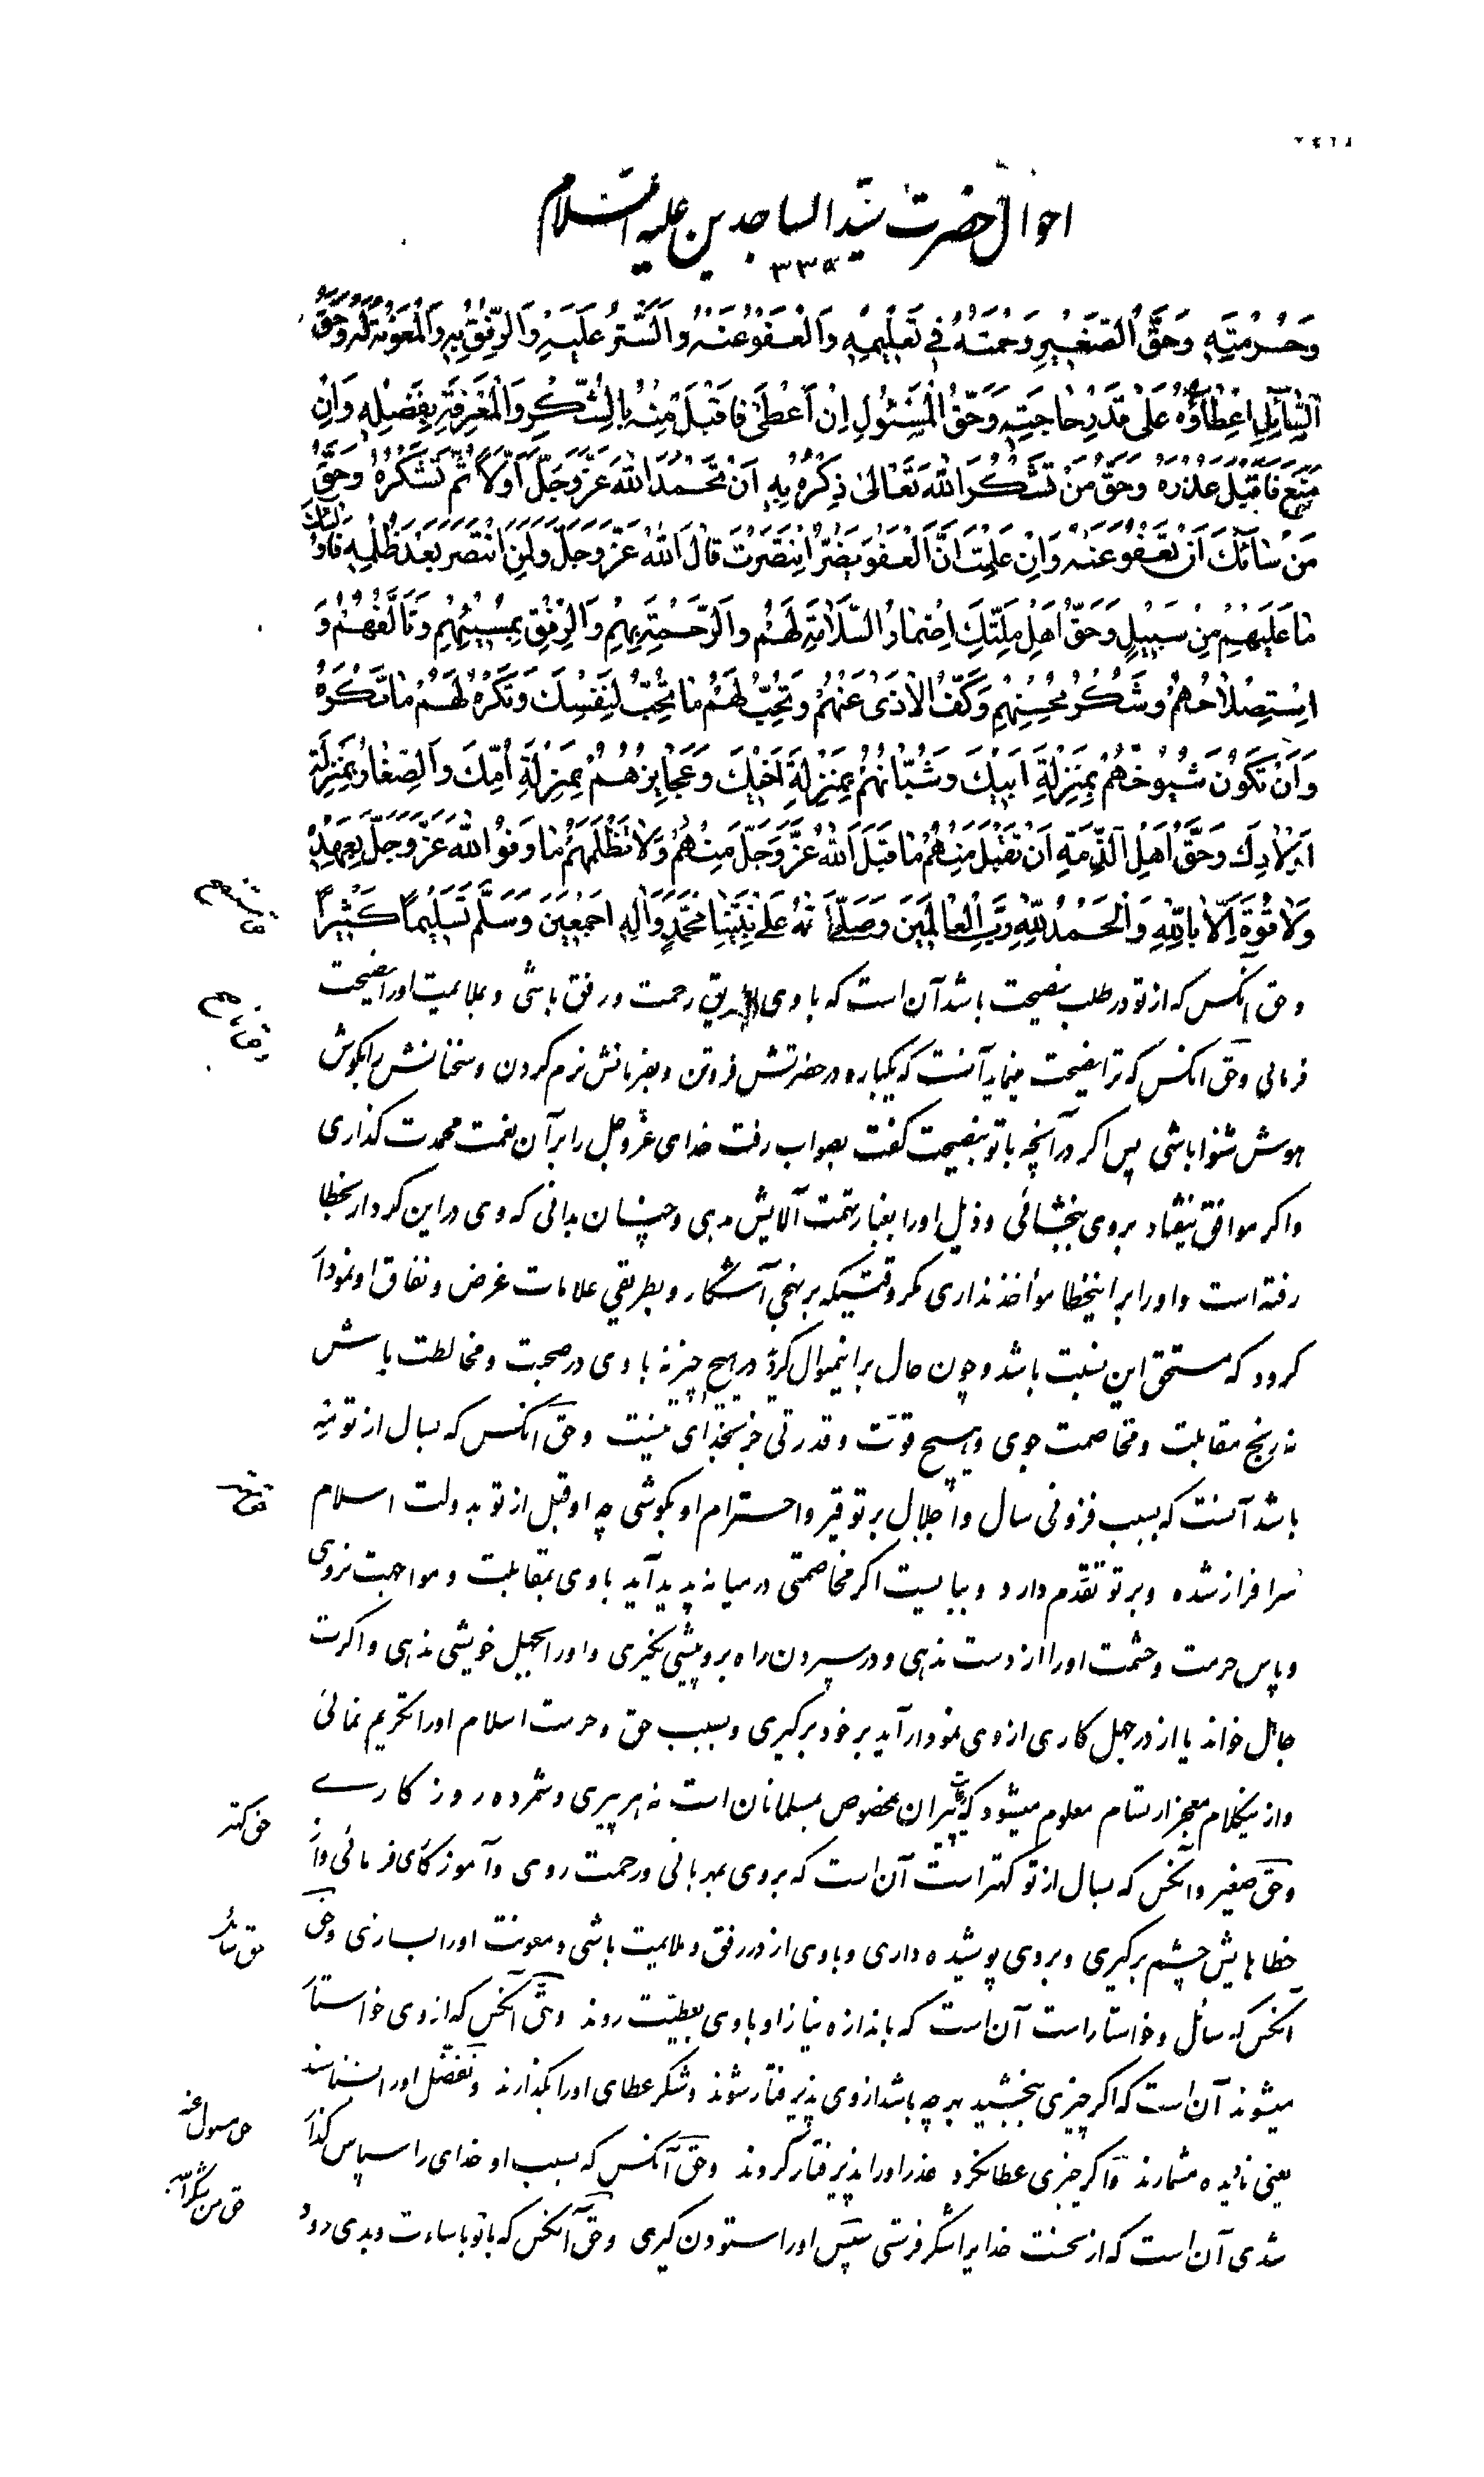 احوال حضرت سیّد الساجدین علیه السّلام
۳۳۵
وَحُرْمَتِهِ وَحَقُّ الصَّغِيرِ رَحْمَتُهُ فِي تَعْلِيمِهِ وَالْعَفْوُ عَنْهُ وَالسَّتْرُ عَلَيْهِ وَالرِّفْقُ بِهِ وَالْمَعُونَةُ لَهُ وَحَقُّ
السَّائِلِ اِعْطَاؤُهُ عَلَى قَدْرِ حَاجَتِهِ وَحَقُّ الْمَسْئُولِ اِنْ اَعْطَى فَاقْبَلْ مِنْهُ بِالشُّكْرِ وَالْمَعْرِفَةِ بِفَضْلِهِ وَاِنْ
مَنَعَ فَاقْبَلْ عُذْرَهُ وَحَقُّ مَنْ تَشْكُرُ اللهَ تَعَالَى ذِكْرُهُ بِهِ اَنْ تَحْمَدَ اللهَ عَزَّ وَجَلَّ اَوَّلاً ثُمَّ تَشْكُرَهُ وَحَقُّ
مَنْ سَائَكَ اَنْ تَعْفُوَ عَنْهُ وَاِنْ عَلِمْتَ اَنَّ الْعَفْوَ يَضُرُّ اِنْتَصَرْتَ قَالَ اللهُ عَزَّ وَجَلَّ وَلَمَنِ انْتَصَرَ بَعْدَ ظُلْمِهِ فَاُولٰئِكَ
مَا عَلَيْهِمْ مِنْ سَبِيلٍ وَحَقُّ اَهْلِ مِلَّتِكَ اِضْمَارُ السَّلَامَةِ لَهُمْ وَالرَّحْمَةِ بِهِمْ وَالرِّفْقِ بِمُسِيئِهِمْ وَتَاَلُّفُهُمْ وَ
اسْتِصْلَاحُهُمْ وَشُكْرُ مُحْسِنِهِمْ وَكَفُّ الْاَذَى عَنْهُمْ وَتُحِبُّ لَهُمْ مَا تُحِبُّ لِنَفْسِكَ وَتَكْرَهُ لَهُمْ مَا تَكْرَهُ
وَاَنْ تَكُونَ شُيُوخُهُمْ بِمَنْزِلَةِ اَبِيكَ وَشُبَّانُهُمْ بِمَنْزِلَةِ اَخِيكَ وَعَجَايِزُهُمْ بِمَنْزِلَةِ اُمِّكَ وَالصِّغَارُ بِمَنْزِلَةِ
اَوْلَادِكَ وَحَقُّ اَهْلِ الذِّمَّةِ اَنْ تَقْبَلَ مِنْهُمْ مَا قَبِلَ اللهُ عَزَّ وَجَلَّ مِنْهُمْ وَلَا تَظْلِمَهُمْ مَا وَفَوْا لِلّٰهِ عَزَّ وَجَلَّ بِعَهْدِهِ
وَلَا قُوَّةَ اِلَّا بِاللهِ وَالْحَمْدُ لِلّٰهِ رَبِّ الْعَالَمِينَ وَصَلَّى اللهُ عَلَى نَبِيِّنَا مُحَمَّدٍ وَآلِهِ اَجْمَعِينَ وَسَلَّمَ تَسْلِيمًا كَثِيرًا
و حق آنکس که از تو در طلب نصیحت باشد آن است که با وی بطریق رحمت و رفق باشی و بملایمت او را نصیحت
فرمائی و حق آنکس که ترا نصیحت مینماید آنست که یکباره در حضرتش فروتن و بفرمانش نرم گردن و سخنانش را بگوش
هوش شنوا باشی پس اگر در آنچه با تو بنصیحت گفت بصواب رفت خدای عزّوجل را بر آن نعمت محمدت گذاری
و اگر موافق نیفتاد بر وی ببخشائی و ذیل او را بغبار تهمت آلایش ندهی و چنان بدانی که وی در این کردار بخطا
رفته است و او را بر اینخطا مؤاخذ نداری مگر وقتیکه بر نهجی آشکار و بطریقی علامات غرض و نفاق او نمودار
گردد که مستحق این نسبت باشد و چون حال بر اینمنوال گیرد در هیچ چیز نه با وی در صحبت و مخالطت باش
نه رنج مقابلت و مخاصمت جوی و هیچ قوّت و قدرتی جز بخدای نیست و حق آنکس که بسال از تو مه
باشد آنست که بسبب فزونی سال و اجلال بر توقیر و احترام او بکوشی چه او قبل از تو بدولت اسلام
سرافراز شده و بر تو تقدّم دارد و ببایست اگر مخاصمتی در میانه پدید آید با وی بمقابلت و مواجهت نروی
و پاس حرمت و حشمت او را از دست ندهی و در سپردن راه بر وی پیشی نگیری و او را بجهل خویشی ندهی و اگرت
جاهل خواند یا از در جهل کاری از وی نمودار آید بر خود برگیری و بسبب حق و حرمت اسلام او را تکریم نمائی
و از اینکلام معجز ارتسام معلوم میشود که رعایت پیران مخصوص بمسلمانان است نه هر پیری و شمرده روز کاری
و حق صغیر و آنکس که بسال از تو کهتر است آن است که بر وی بمهربانی و رحمت روی و آموزگاری فرمائی و از
خطاهایش چشم برگیری و بر وی پوشیده داری و با وی از در رفق و ملایمت باشی و معونت او را بسازی و حق
آنکس که سائل و خواستار است آن است که باندازه نیاز او با وی بعطیّت روند و حق آنکس که از وی خواستار
میشوند آن است که اگر چیزی ببخشید بهر چه باشد از وی پذیرفتار شوند و شکر عطای او را بگذارند و تفضّل او را بشناسند
یعنی نادیده مشمارند و اگر چیزی عطا نکرد عذر او را پذیرفتار گردند و حق آنکس که بسبب او خدای را سپاس گذار
شدی آن است که از نخست خدایرا شکر فرستی سپس او را ستودن گیری و حق آنکس که با تو باساءت و بدی رود
حق کهتر
حق سائل
حق مسول عنه